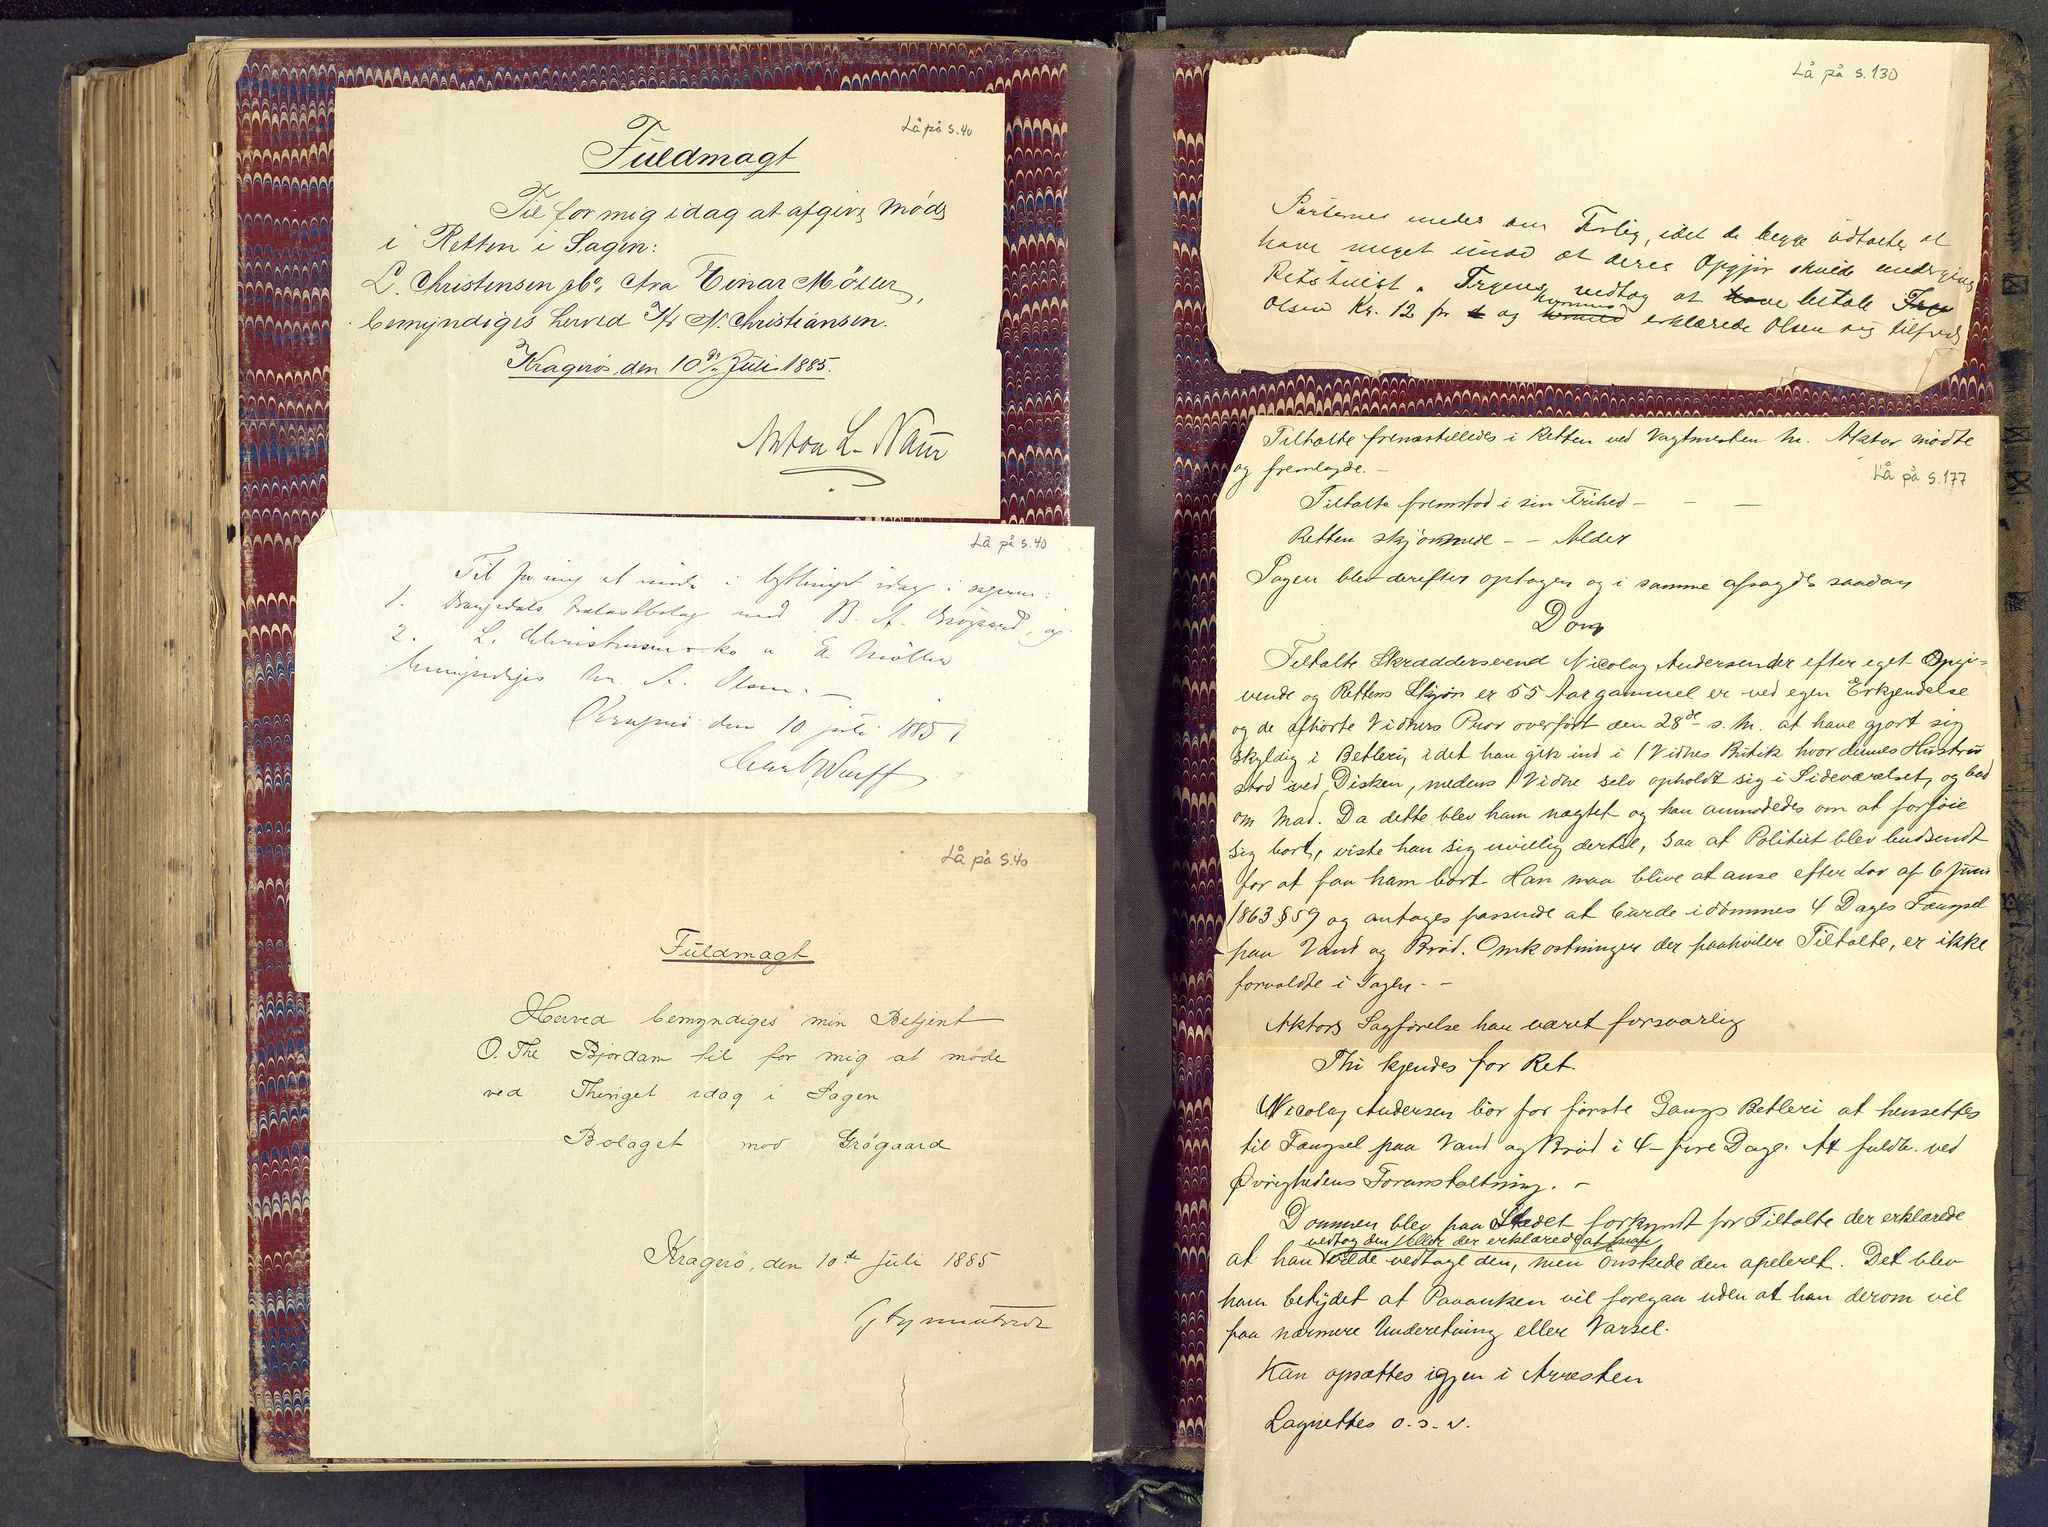 Lå på S.40
Fuldmagt
Til for mig idag at afgive Møde
i Retten i Sagen:
L. Christensen & Co. ctra Einar Möller,
bemyndiges herved N. Christiansen.
Kragerø, den 10de Juli 1885.
Anton L.
Lå på S.40
Til for mig at møde i bythinget idag i sagerne:
1. med B. A. Grögaard, og
2. L. Christensen & Co " E Möller
bemyndiges Hr. A. Olsen. –
Kragerø den 10 juli 1885
Lå på S.40
Fuldmagt
Herved bemyndiges min Betjent
O. The Bjordam til for mig at møde
ved Thinget idag i Sagen
Bolaget mod Grögaard
Kragerö, den 10de Juli 1885
Lå på S.130
Parterne Forlig, idet de begge udtalte at
have meget imod at deres Opgjør skulde undergives
Retstvist. vedtog at have betale
Olsen Kr. 12 pr og hermed erklærede Olsen sig tilfreds
Tiltalte fremstilledes i Retten ved Vagtmesten N. Aktor mødte
og fremlagde. –
Lå på S.177
Tiltalte fremstod i sin Frihed – – –
Retten skjønnede – – Alder
Sagen blev derefter optagen og i samme afsagdes saadan
Dom
Tiltalte Skræddersvend Nicolay Andersen der efter eget Opgi-
vende og Rettens Skjøn er 55 Aar gammel er ved egen Erkjendelse
og de afhørte Vidners Prov overført den 28de s. M. at have gjort sig
skyldig i Betleri, idet han gik ind i 1 Vidnes Butik hvor dennes Hustru
stod ved Disken, medens 1 Vidne selv opholdt sig i Sideværelset, og bad
om Mad. Da dette blev ham nægtet og han anmodedes om at forføie
sig bort, viste han sig uvillig dertil, saa at Politiet blev budsendt
for at faa ham bort. Han maa blive at anse efter Lov af 6 Juni
1863 § 59 og antages passende at burde idømmes 4 Dages Fængsel
paa Vand og Brød. Omkostninger der paahviler Tiltalte, er ikke
forvoldte i Sagen. –
Aktors Sagførelse har været forsvarlig
Thi kjendes for Ret.
Nicolay Andersen bør for første Gangs Betleri at hensettes
til Fængsel paa Vand og Brød i 4 – fire Dage. At fuldb. ved
Øvrighedens Foranstaltning. –
Dommen blev paa Stedet forkyndt for Tiltalte der erklærede
vedtog den eller der erklærede at han
at han vilde vedtage den, men ønskede den apeleret. Det blev
ham betydet at Paaanken vil foregaa uden at han derom vil
faa nærmere Underetning eller Varsel.
Kan opsættes igjen i Arresten
Lagrettes o.s.v.